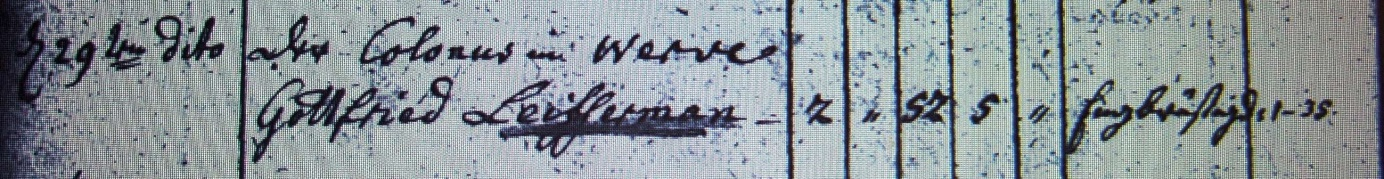 d 29ten dito der Colonus in Werve
Gottfried Leifferman - 2 " 52 5 " Engbrüstigk. 1-35.